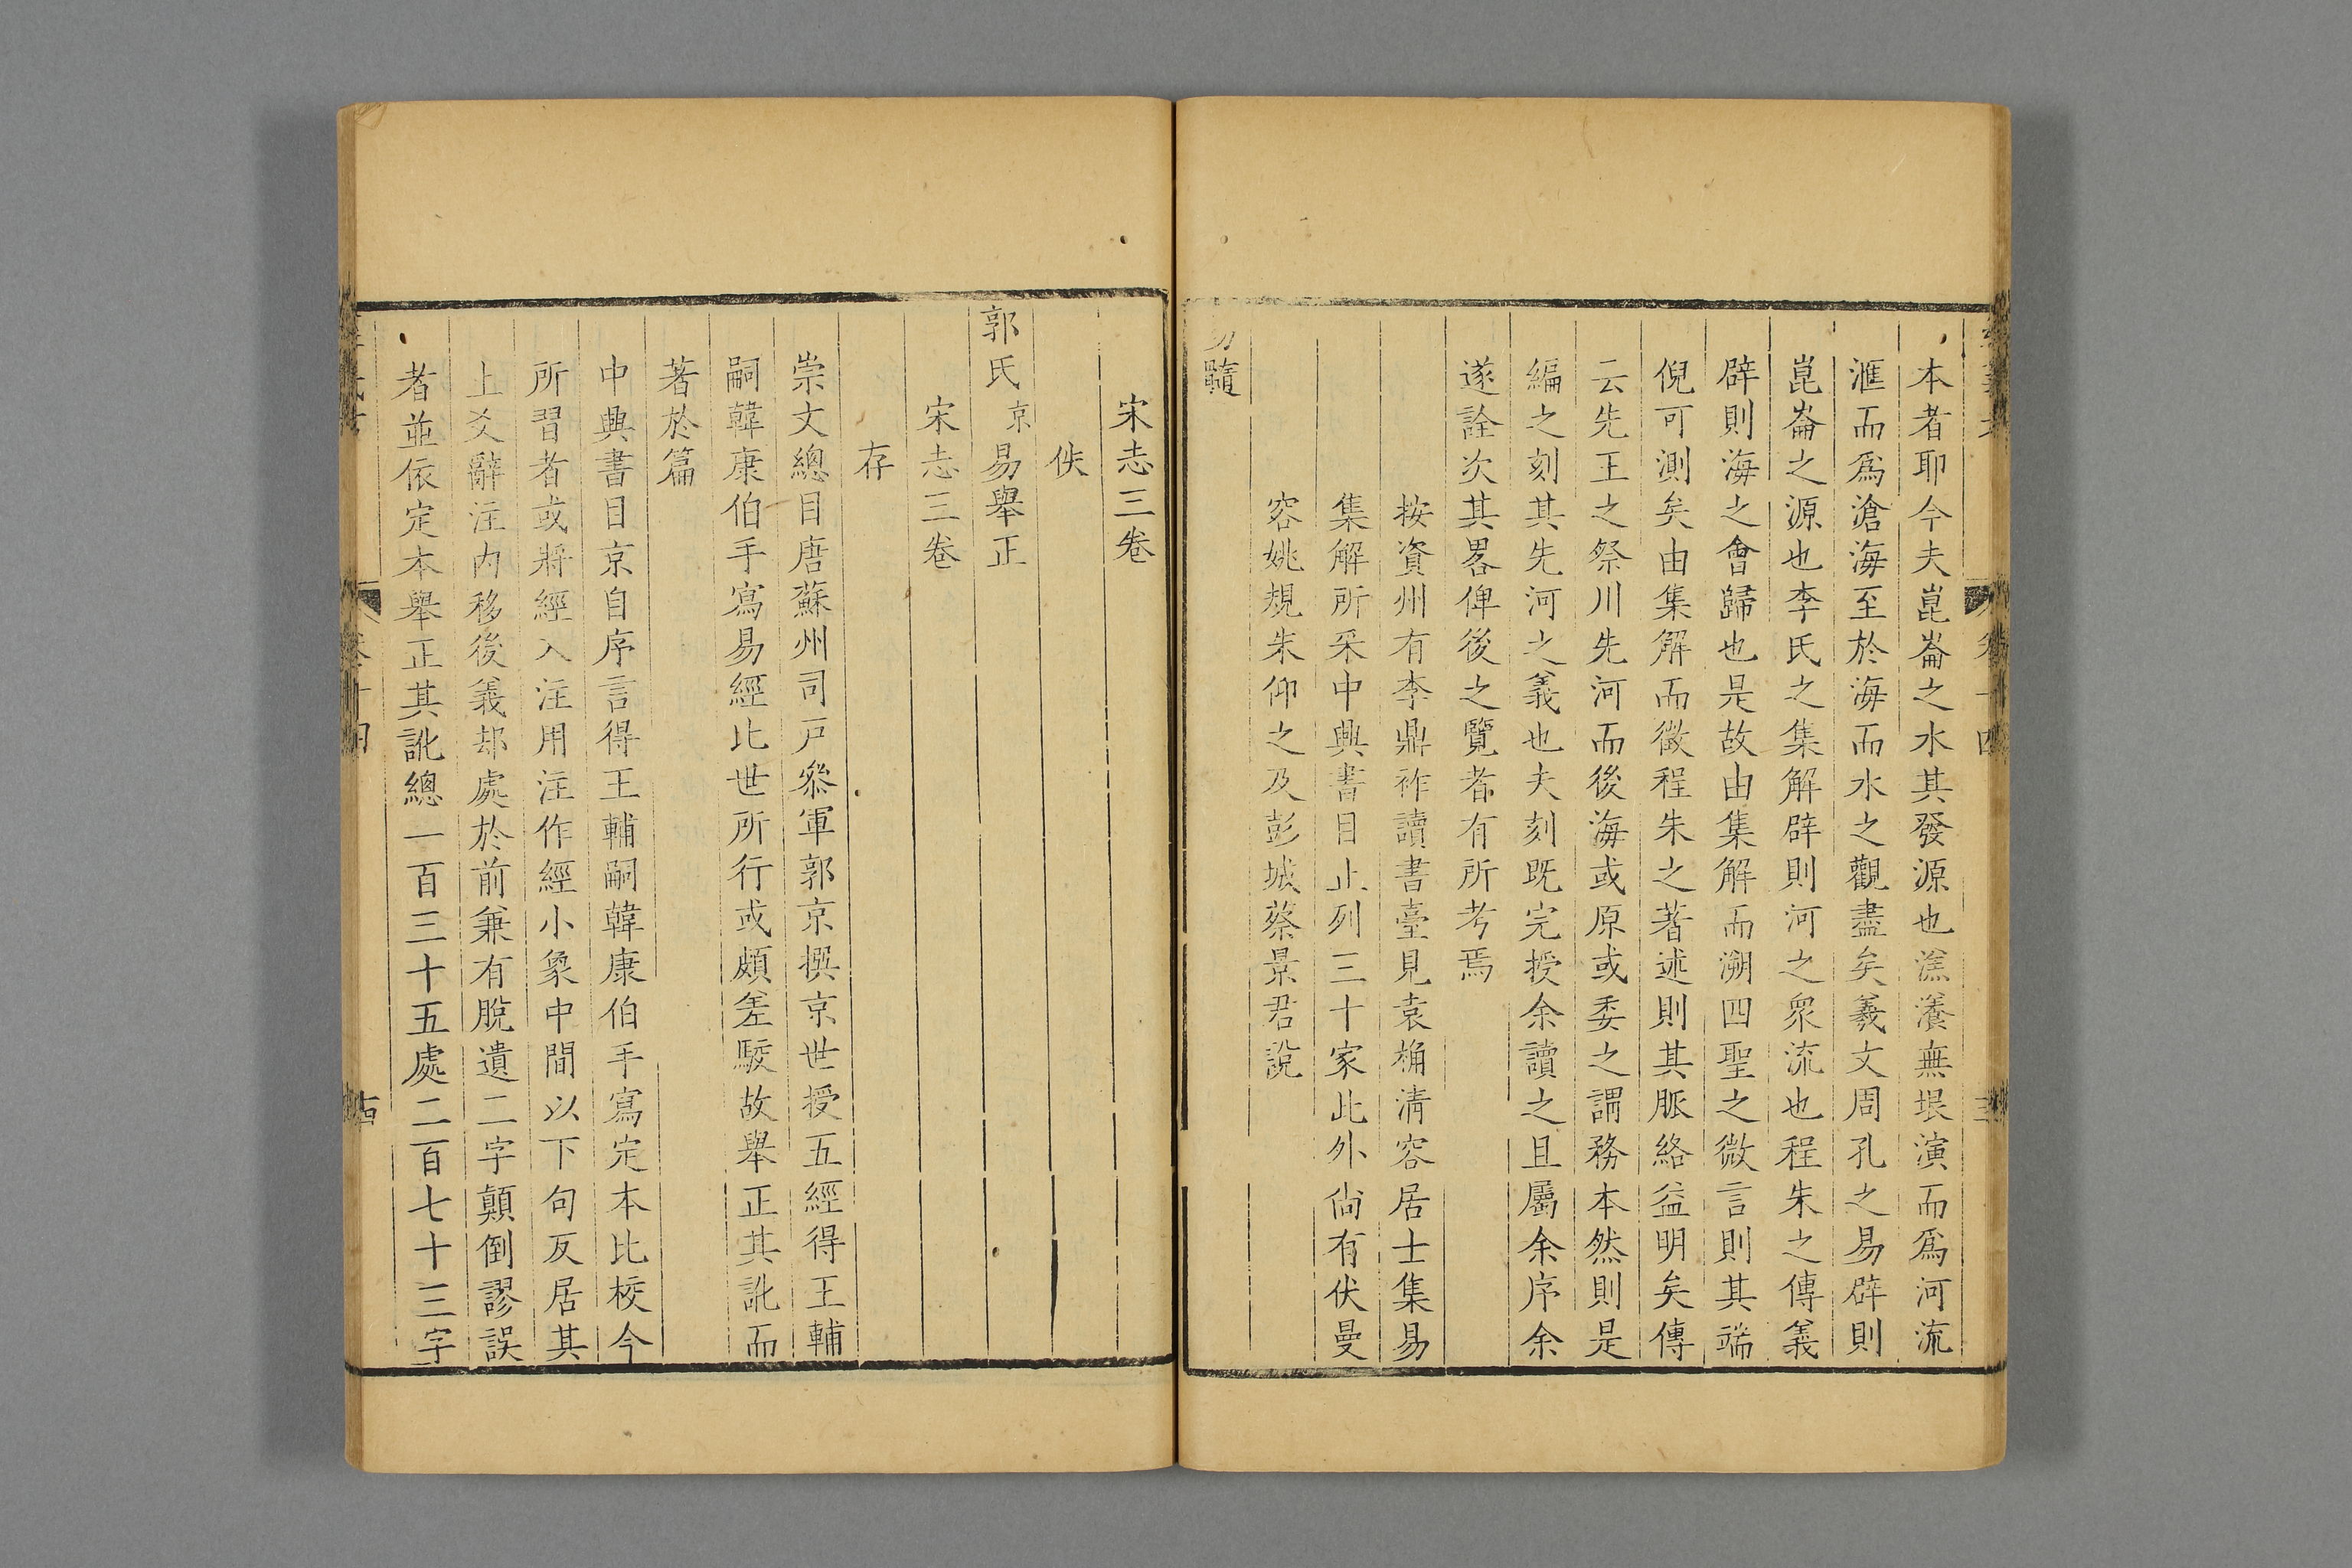 本者耶今夫崑崙之水其發源也濙瀁無垠演而爲河流
滙而爲滄海至於海而水之觀盡矣羲文周孔之易辟則
崑崙之源也李氏之集解辟則河之衆流也程朱之傳義
辟則海之會歸也是故由集解而溯四聖之微言則其端
倪可測矣由集解而徵程朱之著述則其脈絡益明矣傳
云先王之祭川先河而後海或原或委之謂務本然則是
編之刻其先河之義也夫刻既完授余讀之且屬余序余
遂詮次其畧俾後之覽者有所考焉
按資州有李鼎祚讀書臺見袁桷清容居士集易
集解所采中興書目止列三十家此外尙有伏曼
容姚規朱仰之及彭城蔡景君說
易髓
宋志三卷
佚
郭氏京易舉正
宋志三卷
存
崇文總目唐蘇州司戸叅軍郭京撰京世授五經得王輔
嗣韓康伯手寫易經比世所行或頗差駮故舉正其訛而
著於篇
中興書目京自序言得王輔嗣韓康伯手寫定本比校今
所習者或將經入注用注作經小象中間以下句反居其
上爻辭注内移後義却處於前兼有脫遺二字顛倒謬誤
者並依定本舉正其訛總一百三十五處二百七十三字
卷十四